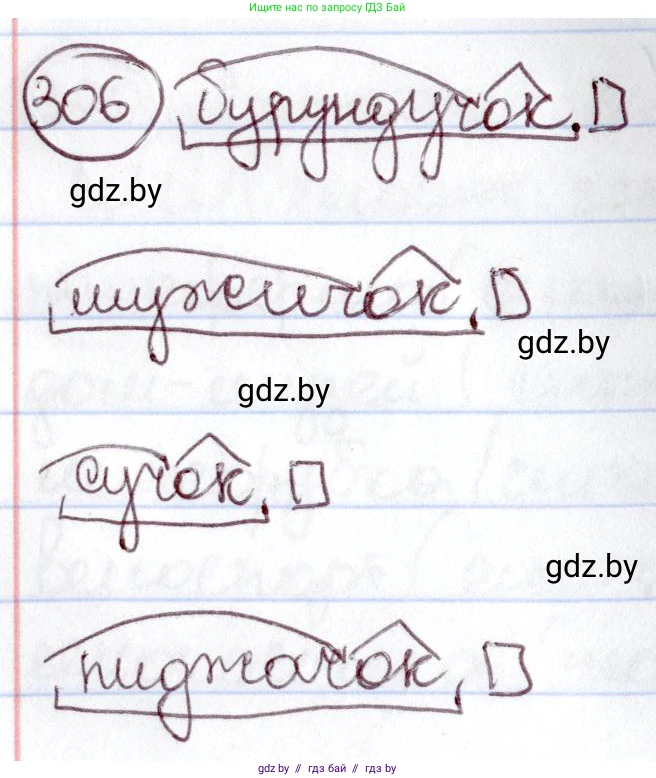 Ищите нас по запросу ГДЗ Бай
306 бурундучок,
gdz.by
мужичок,
gdz.by
gdz.by
сучок,
gdz.by
пиджачок,
gdz.by // гдз бай // гдз by